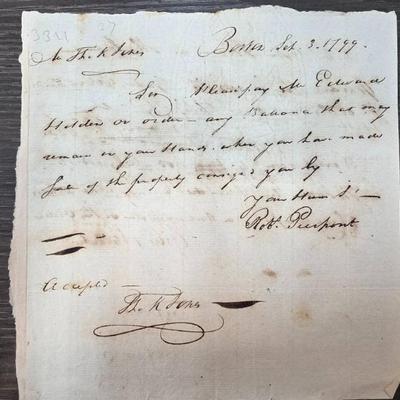 3311 37
Mr Th. K Jones Boston Sep. 3. 1799.
Sir Please pay Mr Edward
Holden or order – any Ballance that may
remain in your Hands, when you have made
Sale of the property consigd you by
Your Hum S
Robt. Pierpont
Accepted
Th. K Jones